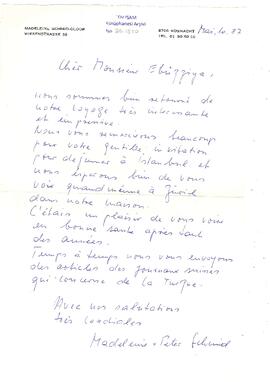 MADELEINE SCHMID-GLOOR
TAHTISAM
Kütüphanesi Arşivi
No
8700 KÜSNACHT
Mai 10. 82
Cher Monsieur Ebüzziya,
Nous sommes bien retourné de
notre voyage très interessante
et empressive.
Nous vous remercions beaucoup
pour votre gentille invitation
pour dejeuner à Istanbul et
nous espérons bien de vous
voir quand même à Zürich
dans notre maison.
C'était un plaisir de vous voir
en bonne santé après tant
des années.
Temps à temps nous vous envoyons
des articles des journaux suisses
qui concerne de la Turquie.
Avec nos salutations
très cordiales
Madeleine + Peter Schmid